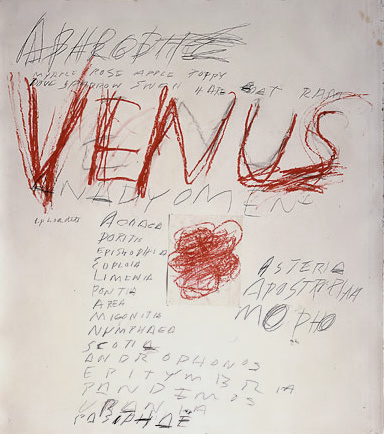 APHRODITE
MYRTLE ROSE APPLE POPPY
DOVE SPARROW SWAN HARE GOAT RAM
VENUS
ANADYOMENE
ACRAEA
DORITIS
EPISTROPHIA
EUPLOIA
LIMENIA
PONTIA
AREA
MIGONITIS
NUMPHAEA
SCOTIA
ANDROPHONOS
EPITYMBRIA
PANDEMOS
URANIA
PASIPHAE
ASTERIA
APOSTROPHIA
MORPHO